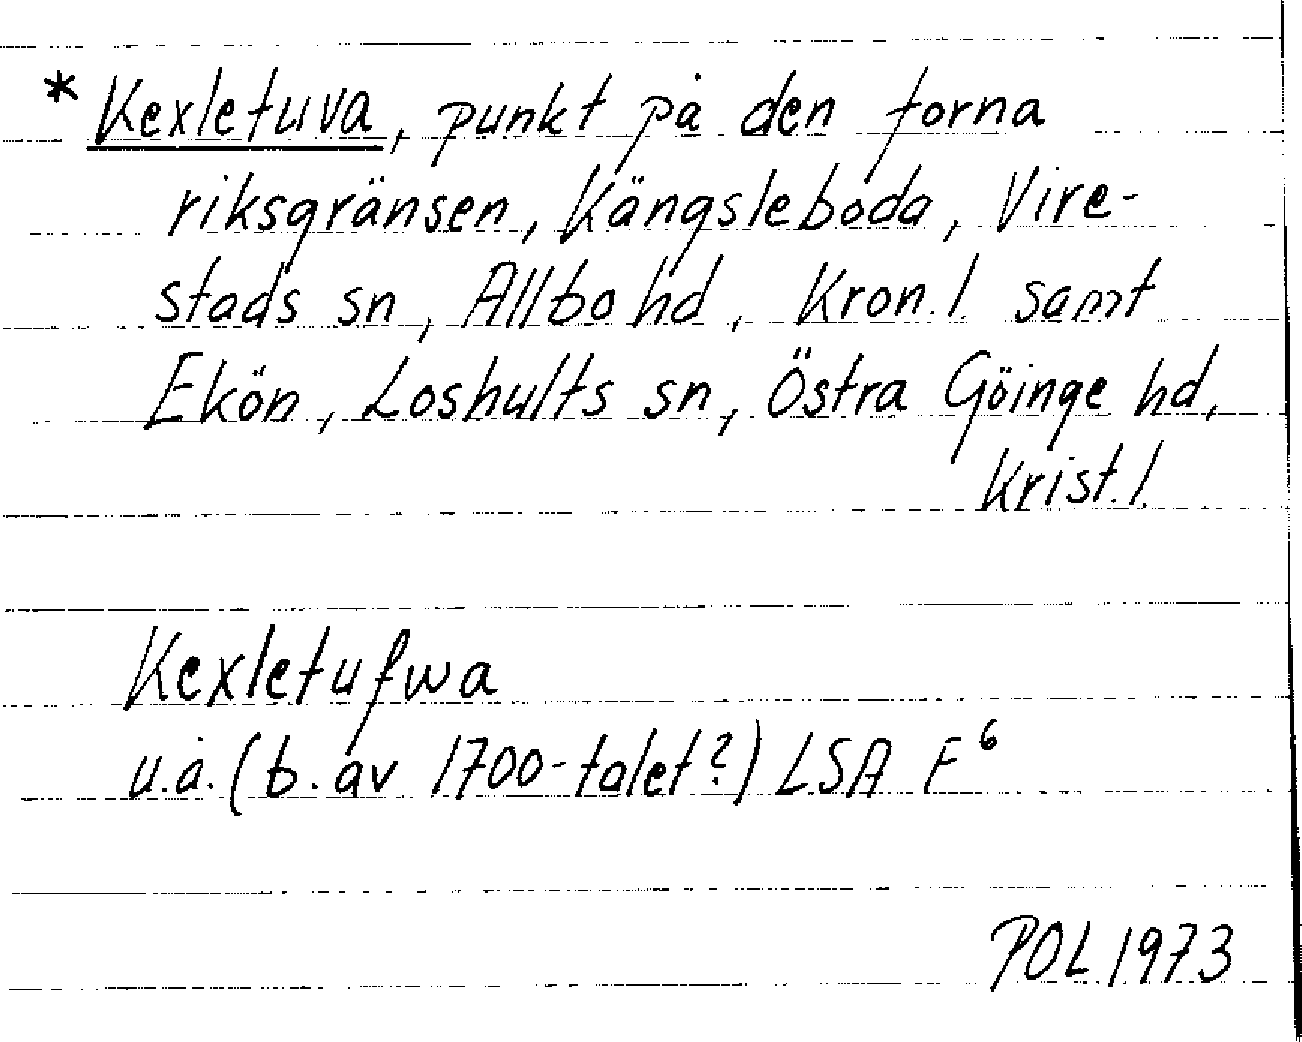 * Kexletuva, punkt på den forna
riksgränsen, Kängsleboda, Vire-
stads sn, Allbo hd, Kron. l. samt
Ekön, Loshults sn, Östra Göinge hd,
Krist. l.
Kexletufwa
u.å. (b. av 1700-talet?) LSA F⁶
POL 1973